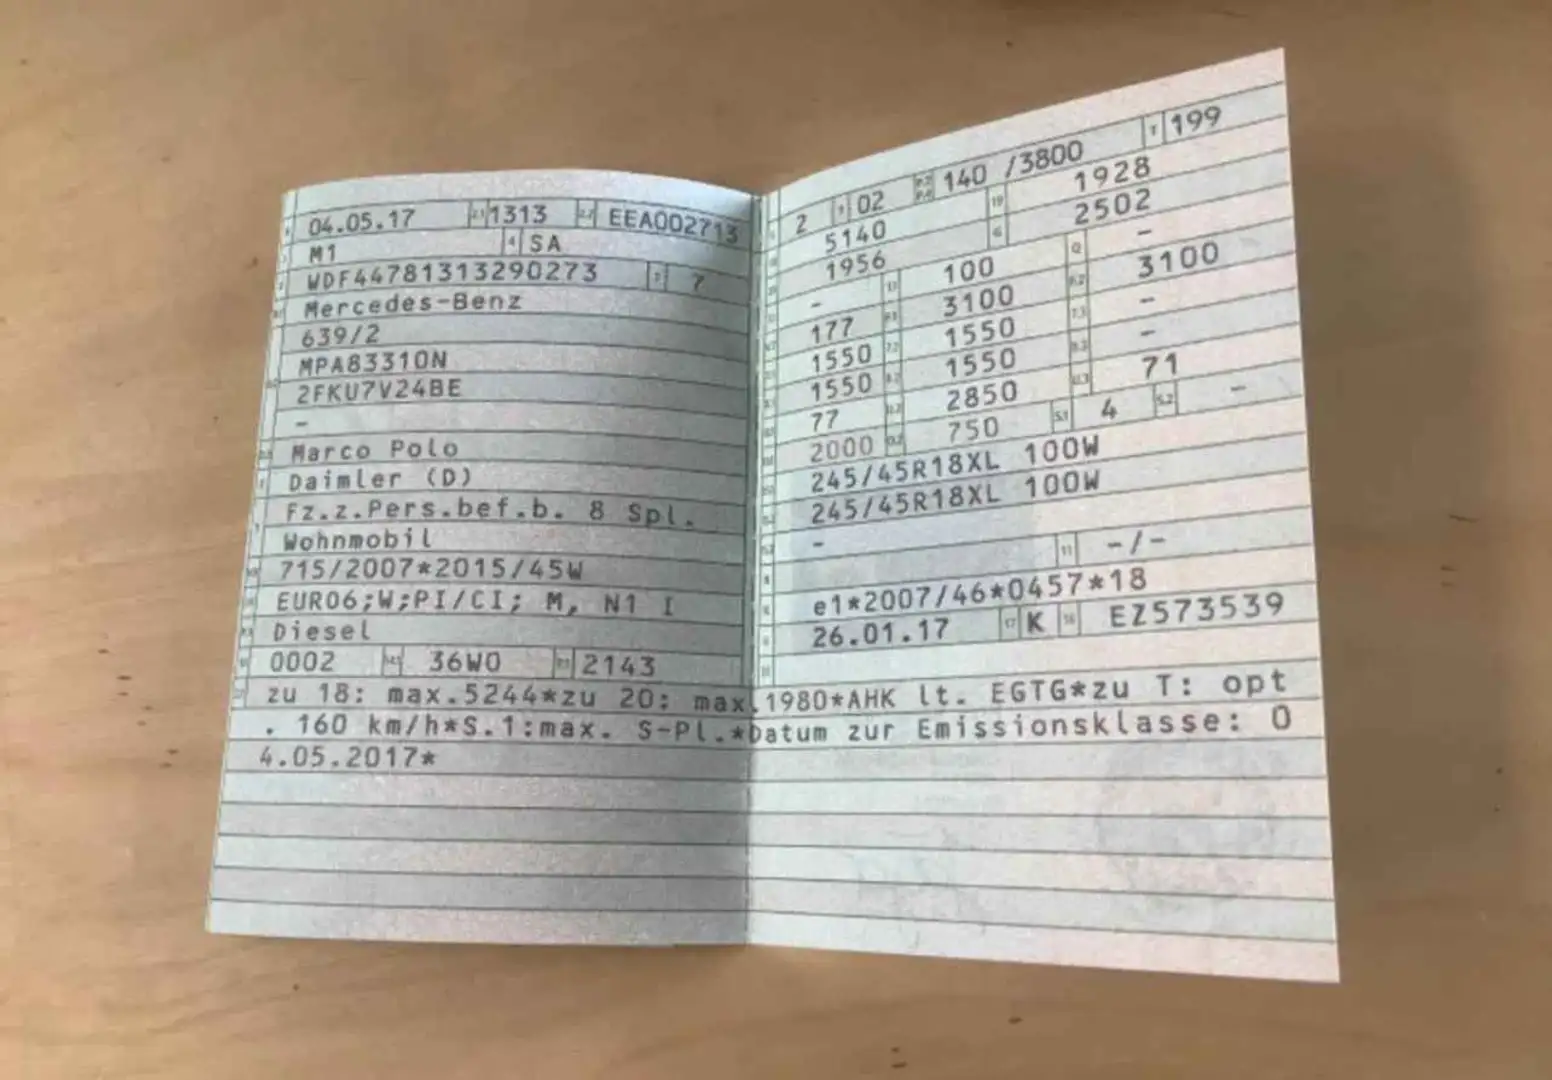 04.05.17 2.1 1313 2.2 EEA002713
M1 4 SA
WDF44781313290273 7
Mercedes-Benz
639/2
MPA83310N
2FKU7V24BE
-
Marco Polo
Daimler (D)
Fz.z.Pers.bef.b. 8 Spl.
Wohnmobil
715/2007*2015/45W
EURO6;W;PI/CI; M, N1 I
Diesel
0002 36W0 2143
2 02 140 /3800 T 199
5140 19 1928
1956 G 2502
- 100 -
177 3100 3100
1550 1550 -
1550 1550 -
77 2850 71
2000 750 S.1 4 S.2 -
245/45R18XL 100W
245/45R18XL 100W
- 11 -/-
e1*2007/46*0457*18
26.01.17 17 K 16 EZ573539
zu 18: max.5244*zu 20: max.1980*AHK lt. EGTG*zu T: opt
. 160 km/h*S.1:max. S-Pl.*Datum zur Emissionsklasse: 0
4.05.2017*